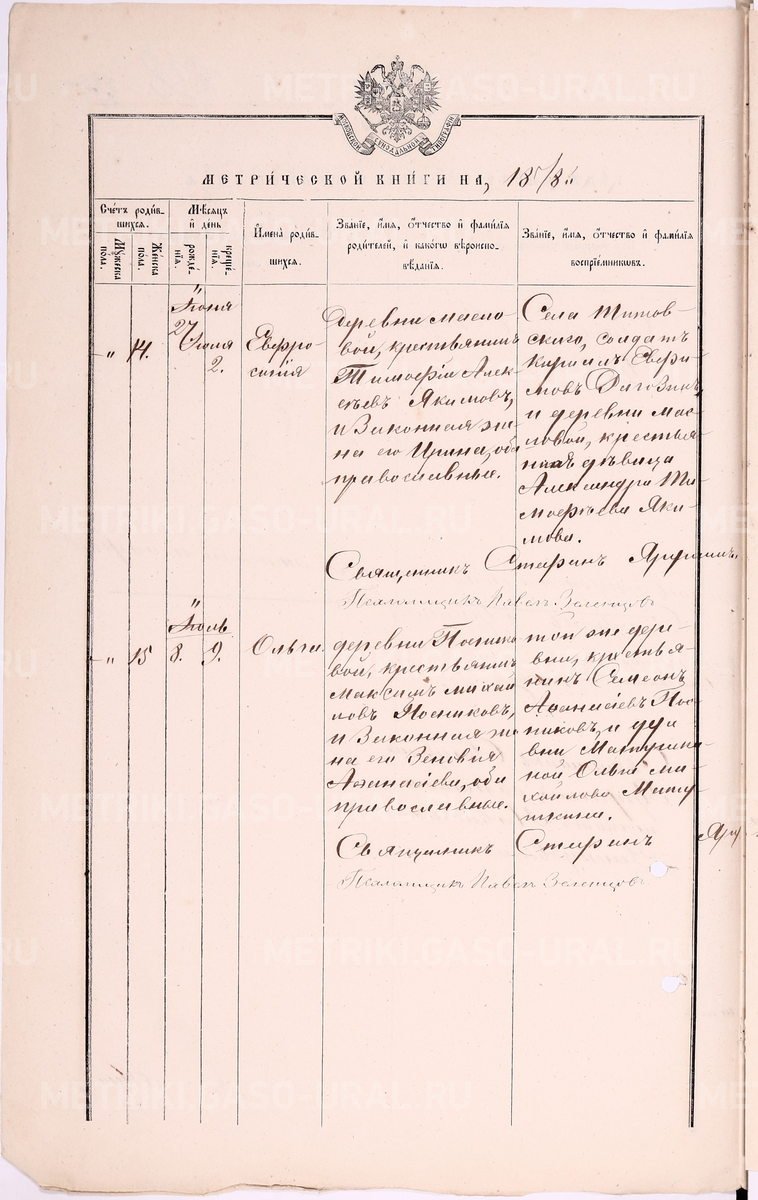 МОСКОВСКОЙ СѴНОДАЛЬНОЙ ТИПОГРАФІИ
МЕТРИ́ЧЕСКОЙ КНИ́ГИ НА, 1878
Сче́тъ роди́в-
шихся.
Му́жеска
пола.
Же́нска
пола.
Мѣсяцъ
и день
рожде́-
нія.
креще́-
нія.
Имена̀ роди́в-
шихся.
Зва́ніе, и́мя, о́тчество и фами́лія
роди́телей, и како́гѡ вѣроиспо-
вѣ́данія.
Зва́ніе, и́мя, о́тчество и фами́лія
воспрїе́мниковъ.
"
Іюня
27
Іюля
2.
"
14.
Евфро-
синія
деревни Масло-
вой, крестьянинъ
Тимофій Алек-
сѣевъ Якимовъ,
и законная же-
на его Ирина, оба
православные.
Села Титов-
скаго, солдатъ
Кириллъ Ефи-
мовъ
и деревни Мас-
ловой, крестья-
дѣвица
Александра Ти-
мофѣева Яки-
мова.
Священникъ Стефанъ
Псаломщикъ Павелъ Зеленцовъ
"
Іюль
8. 9.
"
15
Ольга.
деревни Постнико-
вой, крестьянинъ
Максимъ Михай-
ловъ Посниковъ,
и законная же-
на его Зеновія
Афанасіева, оба
православные.
той же дере-
вни, крестья-
нинъ Симеонъ
Афанасіевъ Пос-
никовъ, и дере-
вни Матушки-
ной Ольга Ми-
хайлова Матуш-
кина.
Священникъ Стефанъ
Псаломщикъ Павелъ Зеленцовъ
METRIKI.GASO-URAL.RU